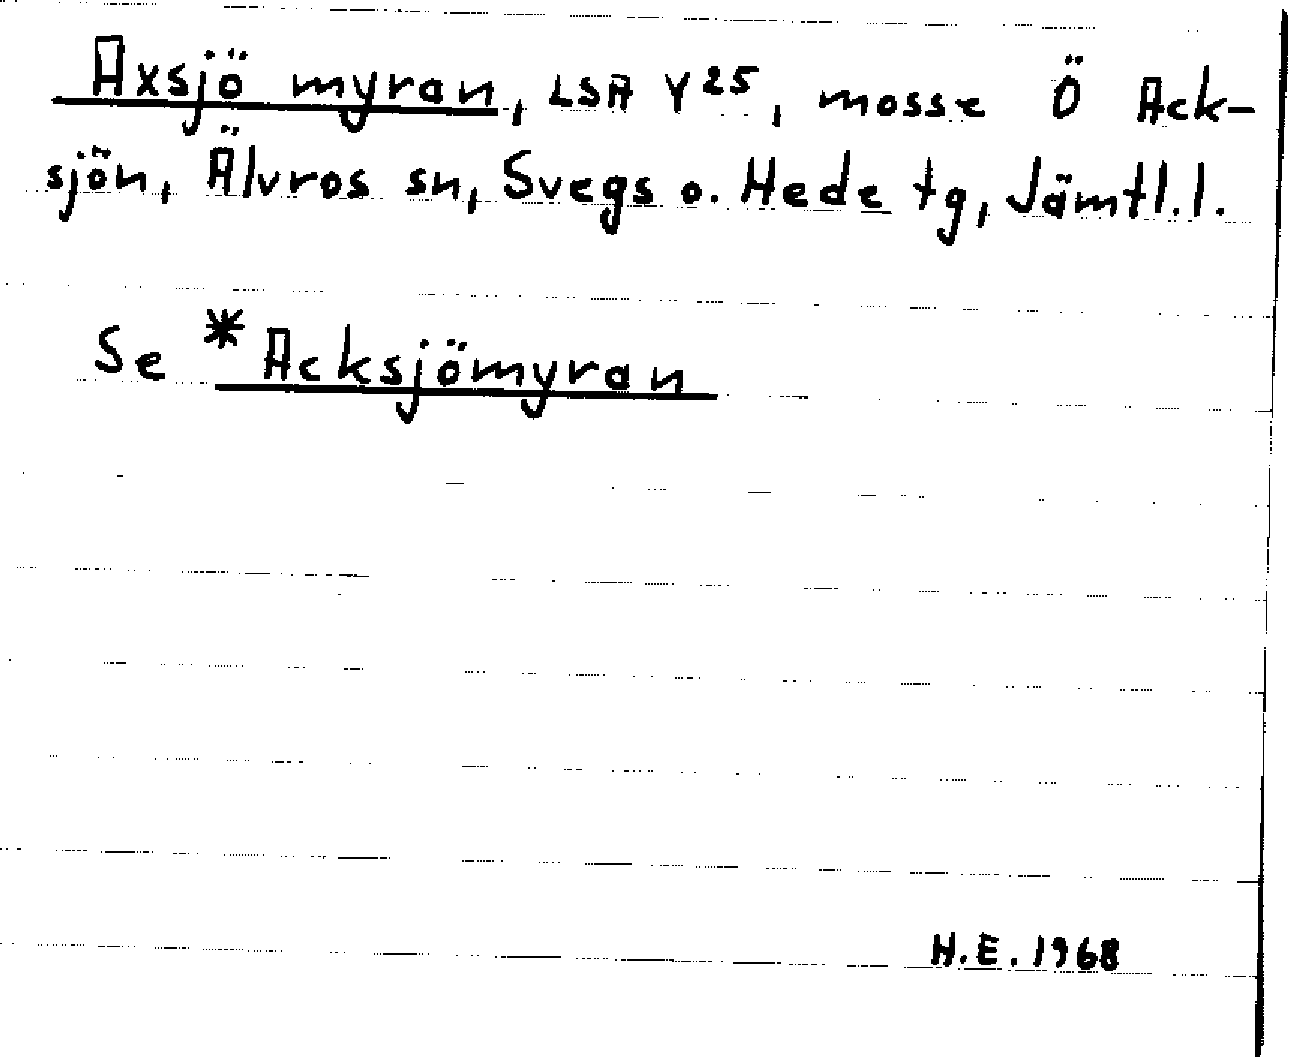 Axsjö myran, LSA Y25, mosse Ö Ack-
sjön, Älvros sn, Svegs o. Hede tg, Jämtl.l.
Se *Acksjömyran
H.E. 1968